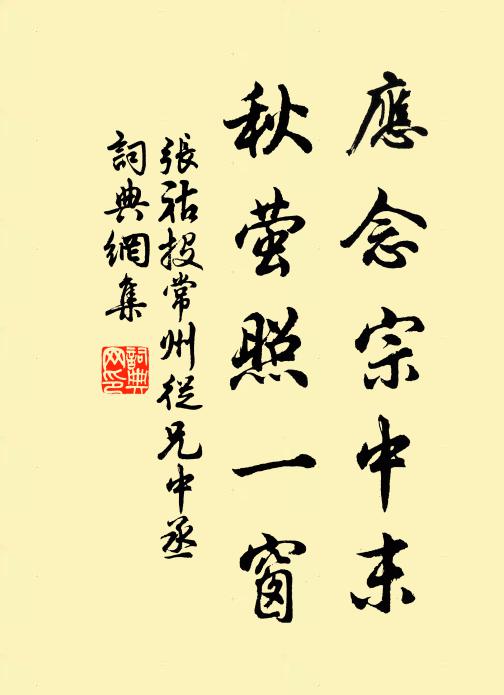 應念宗中末
秋萤照一窗
張祜投常州從兄中丞
詞典網集
詞典
网印